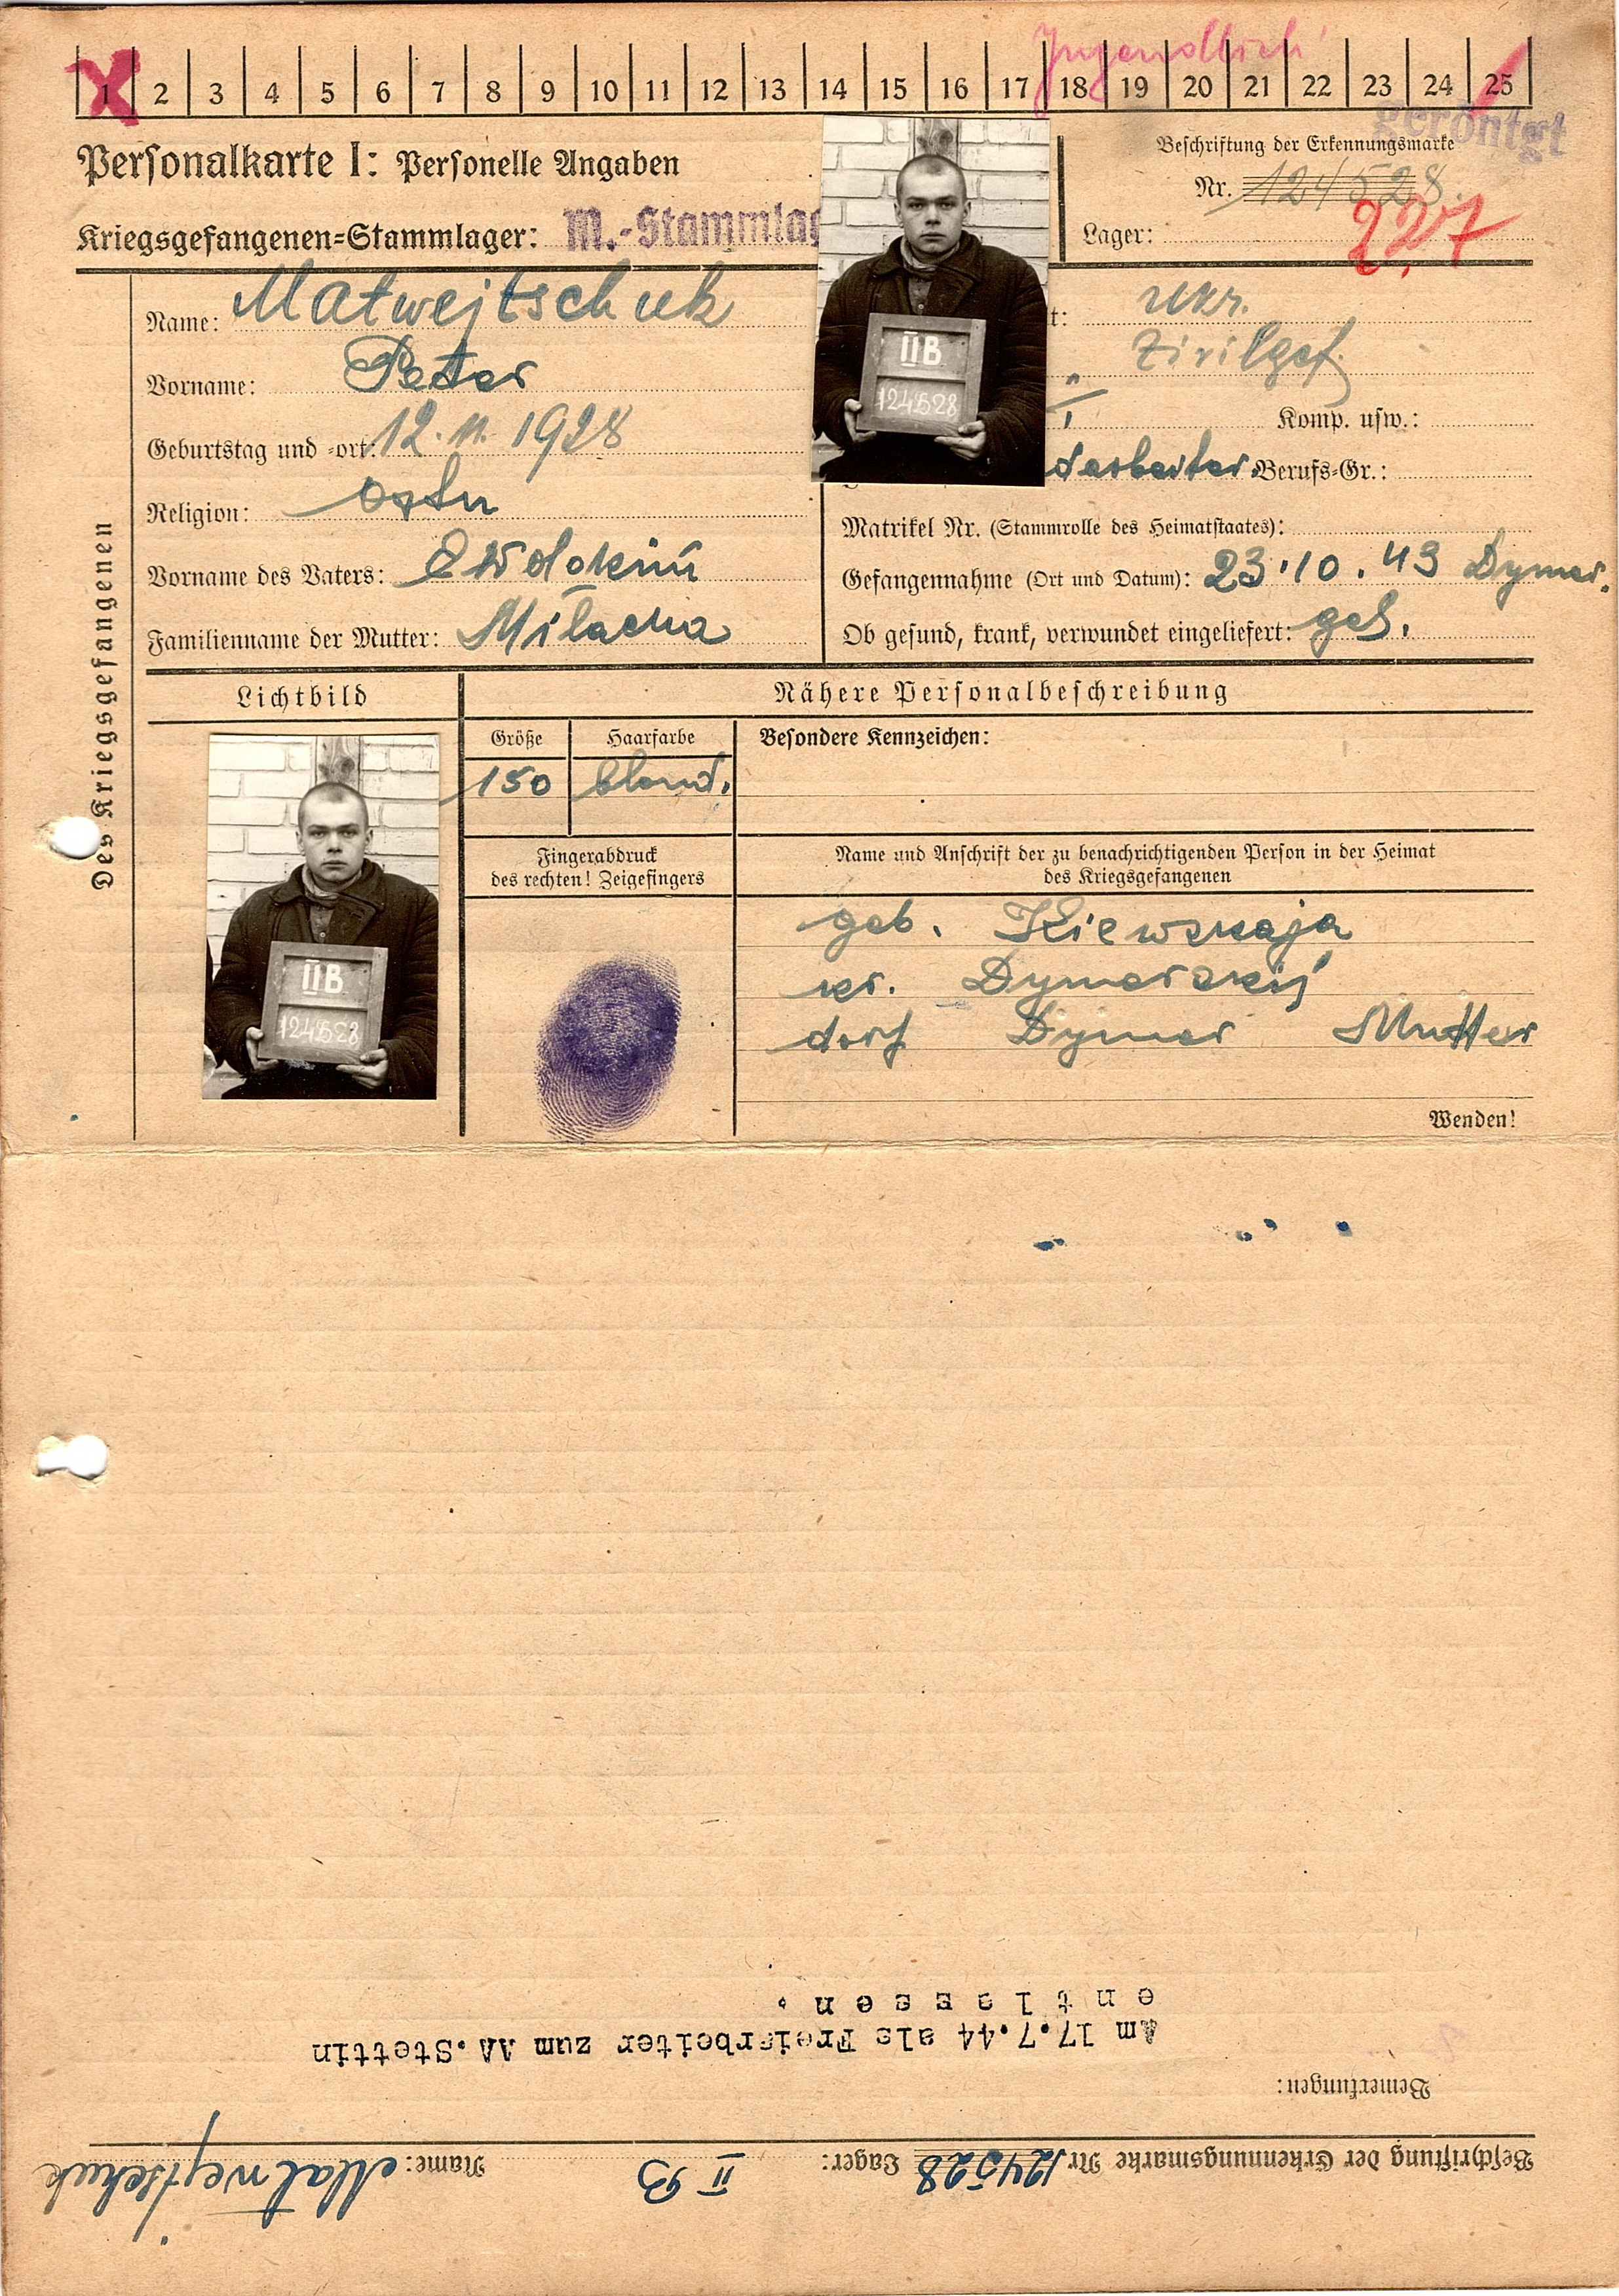 Jugendlich
1 2 3 4 5 6 7 8 9 10 11 12 13 14 15 16 17 18 19 20 21 22 23 24 25
geröntgt
Personalkarte I: Personelle Angaben
Beschriftung der Erkennungsmarke
Nr. 124528.
Kriegsgefangenen-Stammlager: M.-Stammlag
Lager:
227
Des Kriegsgefangenen
Name: Matwejtschuk
Vorname: Peter
Geburtstag und -ort: 12. 11. 1928
Religion: Ostn
Vorname des Vaters: Ewdokim
Familienname der Mutter:
IIB
124528
t: ukr.
Zivilgef.
Komp. usw.:
darbeiter. Berufs-Gr.:
Matrikel Nr. (Stammrolle des Heimatstaates):
Gefangennahme (Ort und Datum): 23.10.43 Dymer.
Ob gesund, krank, verwundet eingeliefert: ges.
Lichtbild
Nähere Personalbeschreibung
Größe
Haarfarbe
Besondere Kennzeichen:
150
blond.
IIB
124528
Fingerabdruck
des rechten! Zeigefingers
Name und Anschrift der zu benachrichtigenden Person in der Heimat
des Kriegsgefangenen
geb. Kiewskaja
kr. Dymerskij
dorf Dymer Mutter
Wenden!
Beschriftung der Erkennungsmarke Nr 124528 Lager: II B Name: Matwejtschuk
Bemerkungen:
Am 17.7.44 als Freiarbeiter zum AA.Stettin
entlassen.